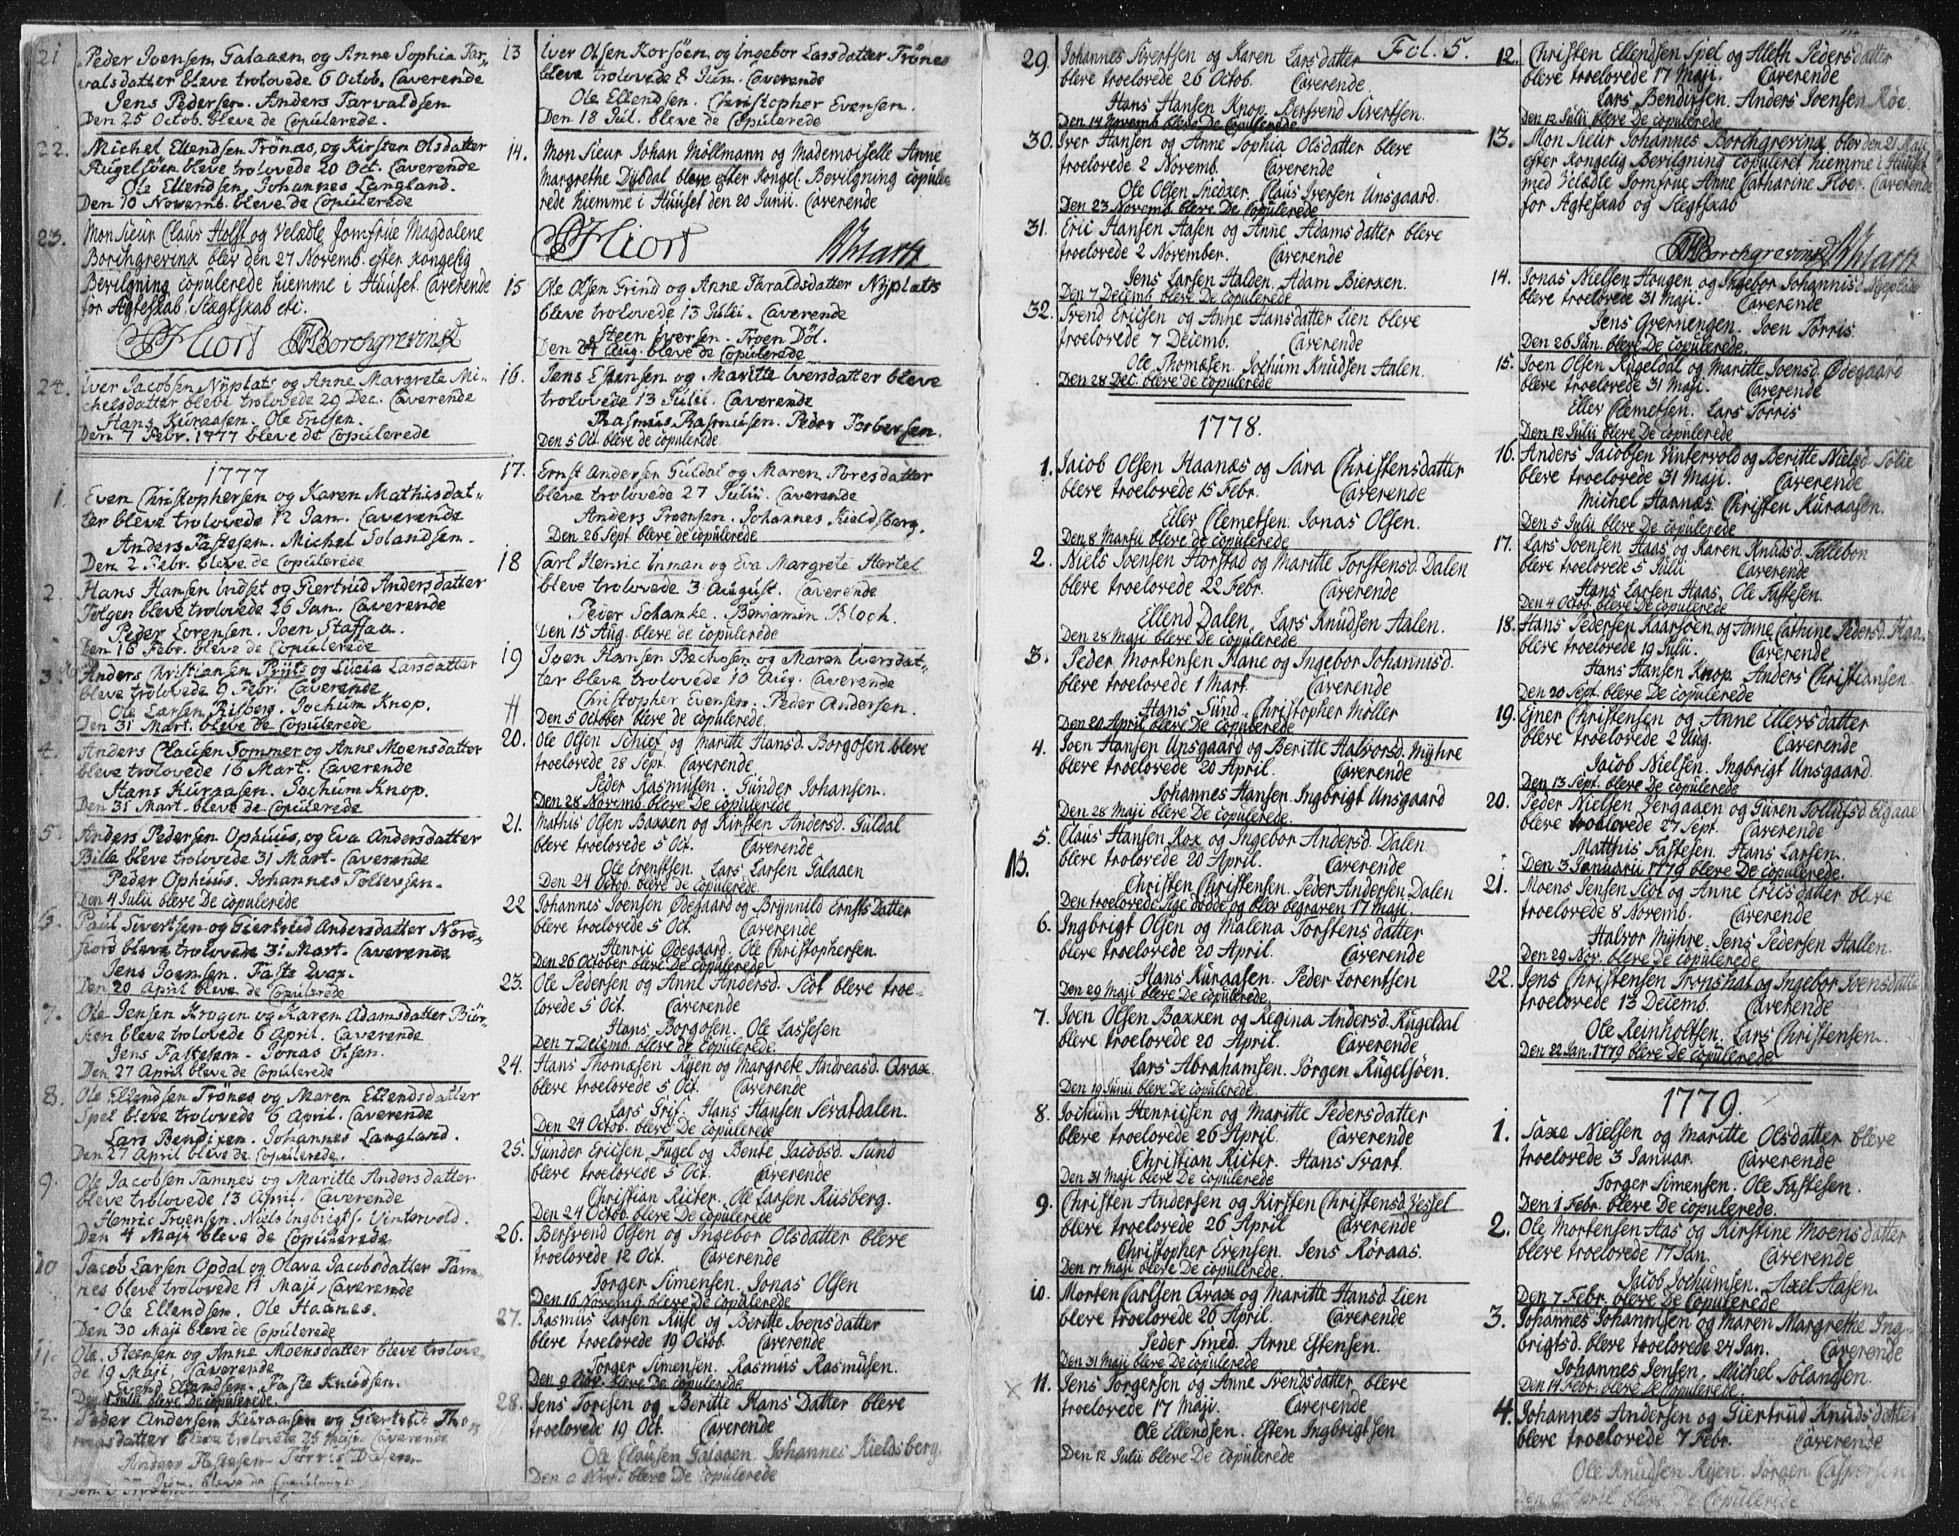 21. Peder Joensen Galaaen og Anne Sophia Tar-
valsdatter bleve trolovede 6 Octob. Caverende
Jens Pedersen. Anders Tarvaldsen
Den 25 Octob. bleve de Copulerede.
22. Michel Ellendsen Trönæs, og Kirsten Olsdatter
Rugelsöen bleve trolovede 20 Oct. Caverende
Ole Ellendsen. Johannes Langland.
Den 10 Novemb. bleve de Copulerede
23. Monsieur Claus Holst og Velædle Jomfrue Magdalene
Borchgrevinx blev den 27 Novemb. efter kongelig
Bevilgning copulerede hiemme i Huuset. Caverende
for Ægteskab. Slegtskab etc.
Hiort Borchgrevink
24. Iver Jacobsen Nyplats og Anne Margrete Mi-
chelsdatter bleve trolovede 29 Dec. Caverende
Hans Kuraasen. Ole Ericsen.
Den 7 Febr. 1777 bleve de Copulerede
1777
1. Even Christophersen og Karen Mathisdat-
ter bleve trolovede 12 Jan. Caverende
Anders Fastesen. Michel Solandsen.
Den 2 Febr. bleve de Copulerede
2. Hans Hansen Indset og Giertrud Andersdatter
Tolgen bleve trolovede 26 Jan. Caverende
Peder Lorensen. Joen Staffaa.
Den 16 Febr. bleve de Copulerede
3. Anders Christiansen Pryts og Lucia Larsdatter
bleve trolovede 9 Febr. Caverende
Ole Larsen Risberg. Jochum Knop.
Den 31 Mart. bleve de Copulerede
4. Anders Clausen Sommer og Anne Moensdatter
bleve trolovede 16 Mart. Caverende
Hans Kuraasen. Jochum Knop.
Den 31 Mart. bleve de Copulerede
5. Anders Pedersen Ophuus, og Eva Andersdatter
Bille bleve trolovede 31 Mart. Caverende
Peder Ophuus. Johannes Tollevsen.
Den 4 Julii bleve de copulerede
6. Paul Sivertsen og Giertrud Andersdatter Nord-
fiord bleve trolovede 31 Mart. Caverende
Jens Joensen. Faste Qvax.
Den 20 April bleve de Copulerede
7. Ole Jensen Krogen og Karen Adamsdatter Biör-
ken bleve trolovede 6 April. Caverende
Jens Fastesen. Jonas Olsen.
Den 27 April bleve de Copulerede
8. Ole Ellendsen Trönes og Maren Ellendsdatter
Spel bleve trolovede 6 April. Caverende
Lars Bendixen. Johannes Langland.
Den 27 April bleve de Copulerede.
9. Ole Jacobsen Tamnes og Maritte Andersdatter
bleve trolovede 13 April. Caverende
Henric Troensen. Niels Ingbrigts. Vintervold.
Den 4 Maji bleve de Copulerede
10 Jacob Larsen Opdal og Olava Jacobsdatter Tam-
nes bleve trolovede 11 Maji, Caverende
Ole Ellendsen. Ole Haanes.
Den 30 Maji bleve de Copulerede
11. Ole Steensen og Anne Moensdatter bleve trolove-
de 19 Maji. Caverende
Svend Ellendsen. Faste Knudsen.
Julii bleve de Copulerede
12. Peder Andersen Kuraasen og Giertrud Tho-
masdatter bleve trolovede 25 Maji Caverende
Anders Fastesen. Törris Olasen
bleve de Copulerede
13 Iver Olsen Korsöen og Ingebor Larsdatter Trönes
bleve trolovede 8 Jun. Caverende
Ole Ellendsen. Christopher Evensen.
Den 18 Jul. bleve de Copulerede
14. Monsieur Johan Möllmann og Mademoiselle Anne
Margrethe Dybdal bleve efter kongel. Bevilgning copule-
rede hiemme i Huuset den 20 Junii. Caverende
Hiort
15 Ole Olsen Grind og Anne Taraldsdatter Nyplats
bleve trolovede 13 Julii. Caverende
Steen Iversen. Troen Döl.
Den 24 Aug. bleve de Copulerede
16. Jens Estensen og Maritte Iversdatter bleve
trolovede 13 Julii. Caverende
Rasmus Rasmusen. Peder Torbersen.
Den 5 Oct. bleve de copulerede.
17. Ernst Andersen Guldal og Maren Toresdatter
bleve trolovede 27 Julii. Caverende
Anders Troensen. Johannes Kieldsberg.
Den 26 Sept. bleve de copulerede
18 Carl Henric Inman og Eva Margrete Hertel
bleve trolovede 3 August. Caverende
Peder Schanke. Benjamin Bloch.
Den 15 Aug. bleve de copulerede
19 Joen Hansen Bechosen og Maren Iversdat-
ter bleve trolovede 10 Aug. Caverende
Christopher Evensen. Peder Andersen.
Den 5 October bleve de copulerede
20. Ole Olsen Schief og Maritte Hansd. Borgosen bleve
troelovede 28 Sept. Caverende
Peder Rasmusen. Gunder Johansen.
Den 28 Novemb. bleve de copulerede
21. Mathis Olsen Baxxen og Kirsten Andersd. Guldal
bleve troelovede 5 Oct. Caverende
Ole Erenstsen. Lars Larsen Galaaen
Den 24 Octob. bleve de copulerede
22 Johannes Joensen Ödegaard og Brynnild Ernstsdatter
bleve troelovede 5 Oct. Caverende
Henric Ödegaard. Ole Christophersen.
Den 26 October bleve De copulerede
23. Ole Pedersen og Anne Andersd. Slot bleve troe-
lovede 5 Oct. Caverende
Hans Borgosen. Ole Lassesen
Den 7 Decemb. bleve de copulerede.
24. Hans Thomasen Ryen og Margrete Andreasd. Qvax
bleve troelovede 5 Oct. Caverende
Lars Grif. Hans Hansen Sevatdalen.
Den 24 Octob. bleve De copulerede
25. Gunder Ericsen Fugel og Bente Jacobsd. Sund
bleve troelovede 5 Oct. Caverende
Christian Richter. Ole Larsen Riisberg.
Den 24 Octob. bleve De copulerede
26. Bersvend Olsen og Ingebor Olsdatter bleve
troelovede 12 Oct. Caverende
Torger Simensen. Jonas Olsen
Den 16 Novemb. bleve de copulerede
27. Rasmus Larsen Ruse og Beritte Joensdatter
bleve troelovede 19 Octob. Caverende
Torger Simensen. Rasmus Rasmusen.
Den 9 Nov. bleve de copulerede
28. Jens Toresen og Beritte Hans Datter bleve
troelovede 19 Oct. Caverende
Ole Clausen Galaaen Johannes Kieldsberg.
Nov. bleve De copulerede
Fol. 5.
29. Johannes Sivertsen og Karen Larsdatter
bleve troelovede 26 Octob. Caverende.
Hans Hansen Knop. Bersvend Sivertsen.
Den 14 Novemb. bleve De Copulerede
30. Iver Hansen og Anne Sophia Olsdatter bleve
troelovede 2 Novemb. Caverende
Ole Olsen Snedker. Claus Iversen Unsgaard.
Den 23 Novemb. bleve De Copulerede
31. Eric Hansen Aasen og Anne Adams datter bleve
troelovede 2 November. Caverende
Jens Larsen Halden. Adam Bierxen.
Den 7 Decemb. bleve De copulerede
32. Svend Ericsen og Anne Hansdatter Lien bleve
troelovede 7 Decemb. Caverende
Ole Thomasen. Jochum Knudsen Aalen.
Den 28 Dec. bleve de copulerede
1778.
1. Jacob Olsen Haanæs og Sara Christensdatter
bleve troelovede 15 Febr. Caverende
Eller Clemetsen. Jonas Olsen.
Den 8 Martii bleve de copulerede
2. Niels Joensen Horstad og Maritte Torstensd. Dalen
bleve troelovede 22 Febr. Caverende
Ellend Dalen. Lars Knudsen Aalen.
Den 28 Maji bleve De copulerede
3. Peder Mortensen Hane og Ingebor Johannisd.
bleve troelovede 1 Mart. Caverende
Hans Sund. Christopher Möller
Den 20 April bleve De Copulerede
4. Joen Hansen Unsgaard og Beritte Halvorsd. Myhre
bleve troelovede 20 April. Caverende
Johannes Hansen. Ingbrigt Unsgaard
Den 28 Maji bleve De copulerede.
5. Claus Hansen Kox og Ingebor Andersd. Dalen
bleve trolovede 20 April. Caverende
NB.
Christen Christensen. Peder Andersen Dalen
Den troelovede Pige dödde og blev begraven 17 Maji.
6. Ingbrigt Olsen og Malena Torstens datter
bleve troelovede 20 April. Caverende
Hans Kuraasen. Peder Lorentsen
Den 29 Maji bleve De copulerede
7. Joen Olsen Baxxen og Regina Andersd. Rugeldal
bleve troelovede 20 April. Caverende
Lars Abrahamsen. Jörgen Rugelsöen.
Den 19 Junii bleve De copulerede.
8. Jochum Henricsen og Maritte Pedersdatter
bleve troelovede 26 April. Caverende
Christian Richter. Hans Svart.
Den 31 Maji bleve De copulerede
9. Christen Andersen og Kirsten Christensd. Vessel
bleve troelovede 26 April Caverende
Christopher Evensen. Jens Röraas.
Den 17 Maji bleve De copulerede.
10. Morten Carlsen Qvax og Maritte Hansd. Lien
bleve troelovede 26 April. Caverende
Peder Smed. Arne Estensen.
Den 31 Maji bleve De copulerede
11. Jens Torgersen og Anne Svendsdatter bleve
troelovede 17 Maji. Caverende
Ole Ellendsen. Esten Ingbrigtsen
Den 12 Julii bleve De copulerede
12. Christen Ellendsen Spel og Aleth Pedersdatter
bleve troelovede 17 Maji. Caverende
Lars Bendixsen. Anders Joensen Röe.
Den 12 Julii bleve De copulerede
13. Mon Sieur Johannes Borchgrevinx blev den 21 Maji
efter kongelig Bevilgning copuleret hiemme i Huuset
med Velædle Jomfrue Anne Catharine Floer. Caverende
for Ægteskab og Slegtskab
Borchgrevink
14. Jonas Nielsen Hougen og Ingebor Johannisd. Nyeplads
bleve troelovede 31 Maji. Caverende
Jens Gverningen. Joen Törris.
Den 26 Jun. bleve De copulerede.
15. Joen Olsen Rugeldal og Maritte Joensd. Ödegaard
bleve troelovede 31 Maji. Caverende
Eller Clemetsen. Lars Törris
Den 12 Julii bleve De Copulerede
16. Anders Jacobsen Vintervold og Beritte Nielsd. Solie
bleve troelovede 31 Maji. Caverende
Michel Haanæs. Christen Kuraasen.
Den 5 Julii bleve De copulerede
17. Lars Joensen Haas og Karen Knudsd. Fellebon
bleve troelovede 5 Julii Caverende
Hans Larsen Haas. Ole Fastesen.
Den 4 Octob. bleve De copulerede
18. Hans Pedersen Kaarsöen og Anne Cathrine Pedersd. Haa-
bleve troelovede 19 Julii. Caverende
Hans Hansen Knop. Anders Christiansen
Den 20 Sept. bleve De copulerede
19. Ejner Christensen og Anne Ellersdatter
bleve troelovede 2 Aug. Caverende
Jacob Nielsen. Ingbrigt Unsgaard.
Den 13 Sept. bleve De copulerede
20. Peder Nielsen Vergaaen og Guren Sollufsd. Elgaae
bleve troelovede 27 Sept. Caverende
Matthis Fastesen. Hans Larsen.
Den 3 Januarii 1779 bleve De copulerede.
21. Moens Jensen Slot og Anne Ericsdatter bleve
troelovede 8 Novemb. Caverende
Halvor Myhre. Jens Pedersen Hallen.
Den 29 Nov. bleve De copulerede
22. Jens Christensen Tronshat og Ingebor Joensdatte
troelovede 13 Decemb. Caverende
Ole Reinholtsen. Lars Christensen.
Den 22 Jan. 1779 bleve De copulerede
1779.
1. Saxe Nielsen og Maritte Olsdatter bleve
troelovede 3 Januar. Caverende
Torger Simensen. Ole Fastesen.
Den 1 Febr. bleve De copulerede.
2. Ole Mortensen Aas og Kirstine Moensdatter
bleve troelovede 17 Jan. Caverende
Jacob Jochumsen. Axel Aasen.
Den 7 Febr. bleve De Copulerede
3. Johannes Johannisen og Maren Margrethe Ing-
brigtsd. bleve troelovede 24 Jan. Caverende
Johannes Jensen. Michel Solandsen.
Den 14 Febr. bleve De copulerede.
4. Johannes Andersen og Giertrud Knudsdatter
bleve troelovede 7 Febr. Caverende
Ole Knudsen Ryen. Jörgen Caspersen
April bleve De Copulerede